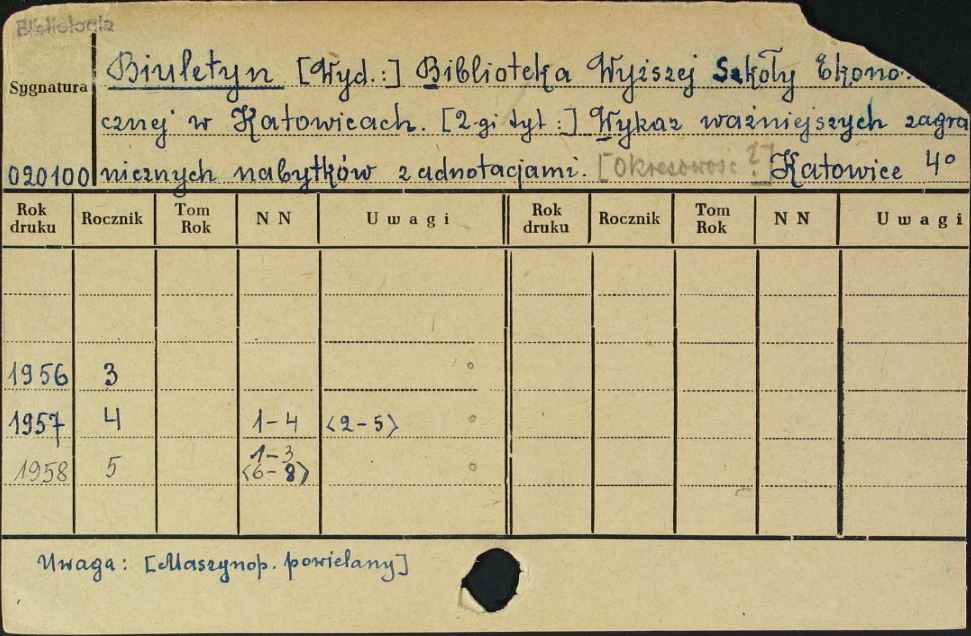 Bibliologia
Sygnatura
Biuletyn [Wyd.:] Biblioteka Wyższej Szkoły Ekono.
cznej w Katowicach. [2-gi tyt.:] Wykaz ważniejszych zagra
020100 nicznych nabytków z adnotacjami. [Okresowość ?] Katowice 4°
Rok druku Rocznik Tom Rok N N Uwagi Rok druku Rocznik Tom Rok N N Uwagi
1956 3
1957 4 1-4 <2-5>
1958 5 1-3 <6-8>
Uwaga: [Maszynop. powielany]